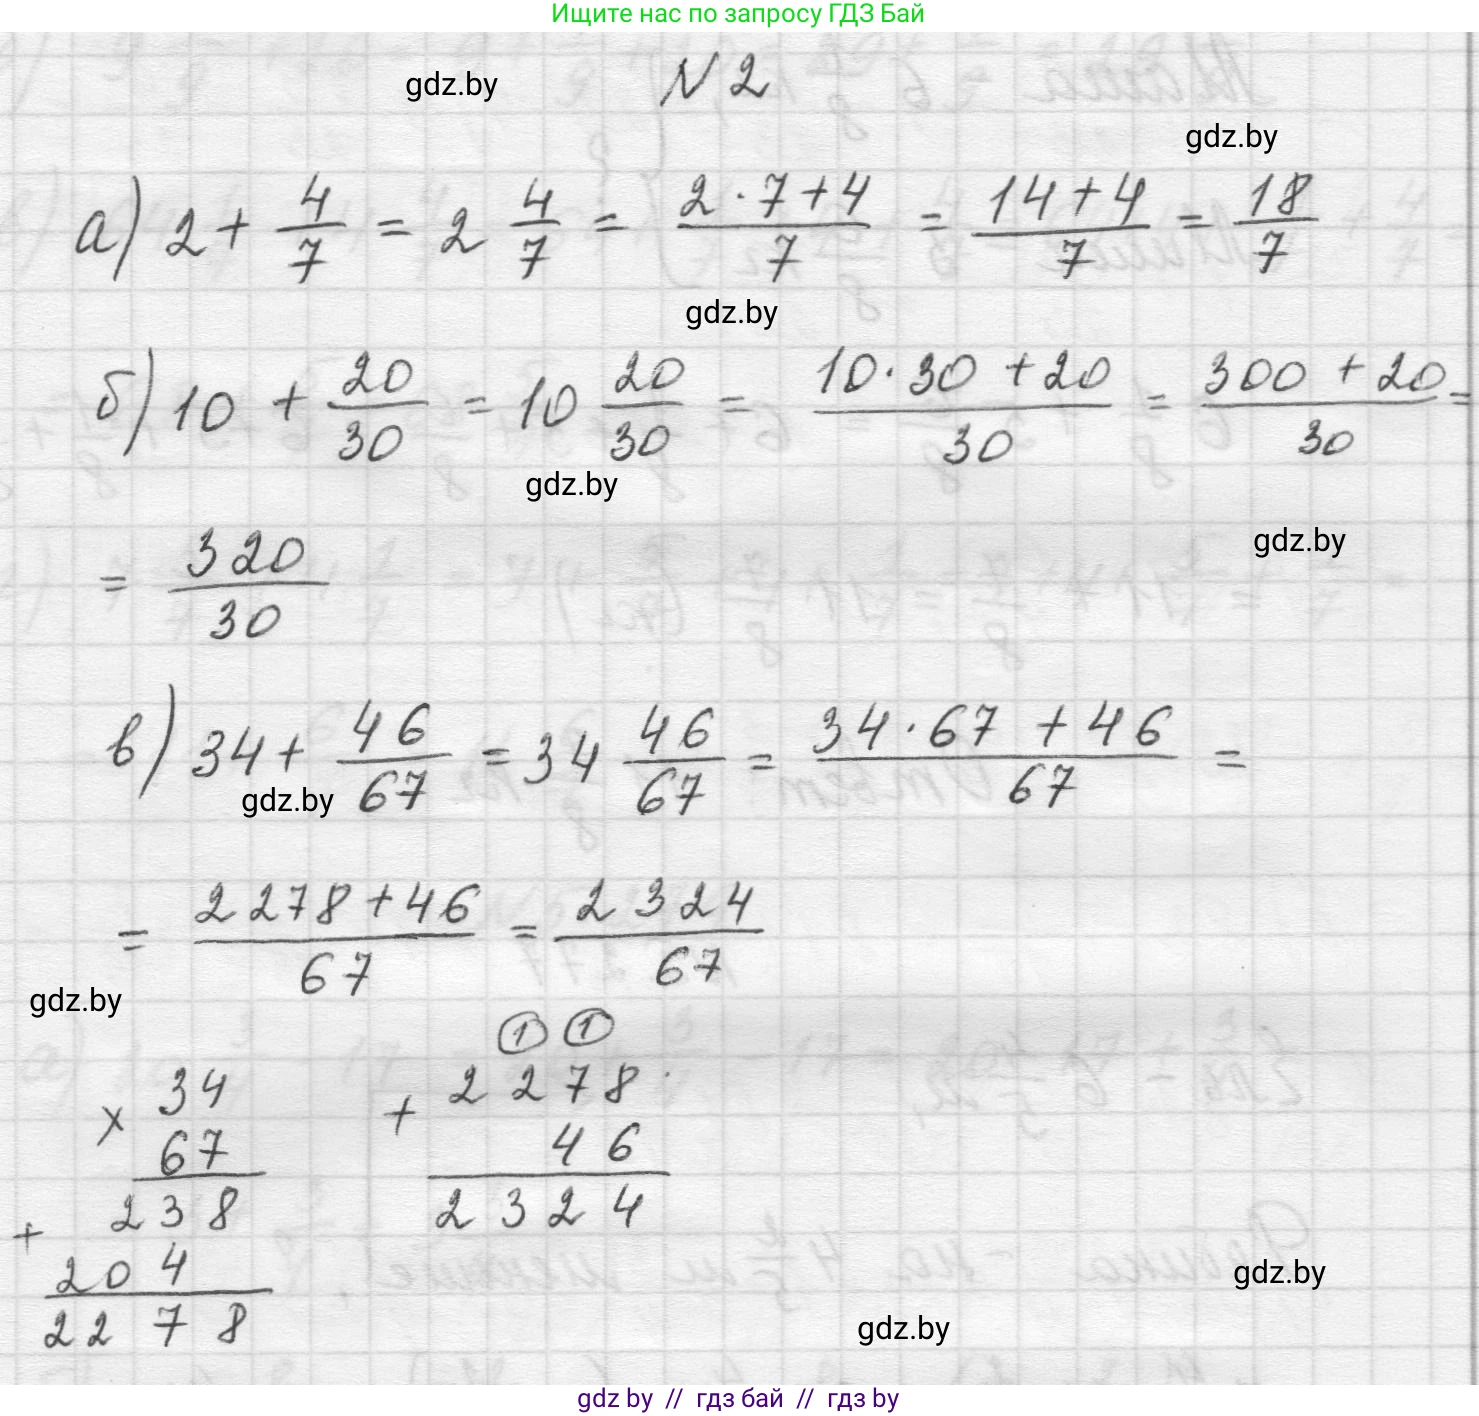 Ищите нас по запросу ГДЗ Бай
gdz.by
№2
gdz.by
а) 2 + 4/7 = 2 4/7 = (2·7+4)/7 = (14+4)/7 = 18/7
gdz.by
б) 10 + 20/30 = 10 20/30 = (10·30+20)/30 = (300+20)/30 =
gdz.by
gdz.by
= 320/30
в) 34 + 46/67 = 34 46/67 = (34·67+46)/67 =
gdz.by
= (2278+46)/67 = 2324/67
gdz.by
1 1
× 34
67
238
+
204
2278
+ 2278
46
2324
gdz.by
gdz.by
gdz by // гдз бай // гдз by